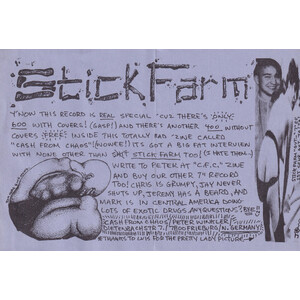 StickFarm
Y'NOW THIS RECORD IS REAL SPECIAL 'CUZ THERE'S ONLY
600 WITH COVERS! (GASP!) AND THERE'S ANOTHER 400 WITHOUT
COVERS FREE! INSIDE THIS TOTALLY RAD 'ZINE CALLED
"CASH FROM CHAOS"! (WOWEE!) IT'S GOT A BIG FAT INTERVIEW
WITH NONE OTHER THAN STICK FARM TOO! (I HATE THEM.)
WRITE TO PETER AT "C.F.C." ZINE
AND BUY OUR OTHER 7" RECORD
TOO! CHRIS IS GRUMPY, JAY NEVER
SHUTS UP, JEREMY HAS A BEARD, AND
MARK IS IN CENTRAL AMERICA DOING
LOTS OF EXOTIC DRUGS. ANY QUESTIONS?
CASH FROM CHAOS/PETER WINKLER/
7800 FREIBURG/W. GERMANY!
THANKS TO LUIS FOR THE PRETTY LADY PICTURE